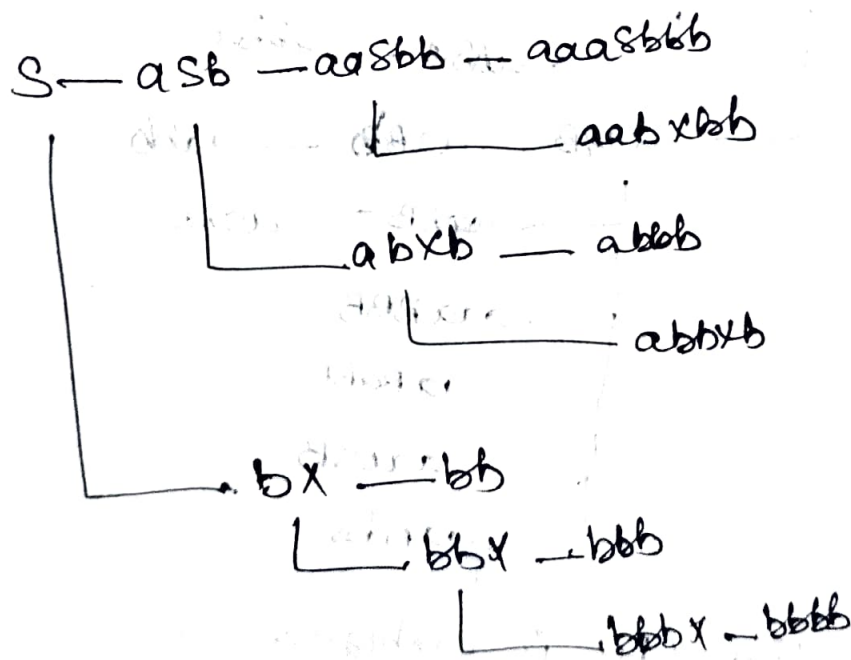 S — aSb — aaSbb — aaaSbbb
aabXbb
abXb — abbb
abbXb
bX — bb
bbX — bbb
bbbX — bbbb